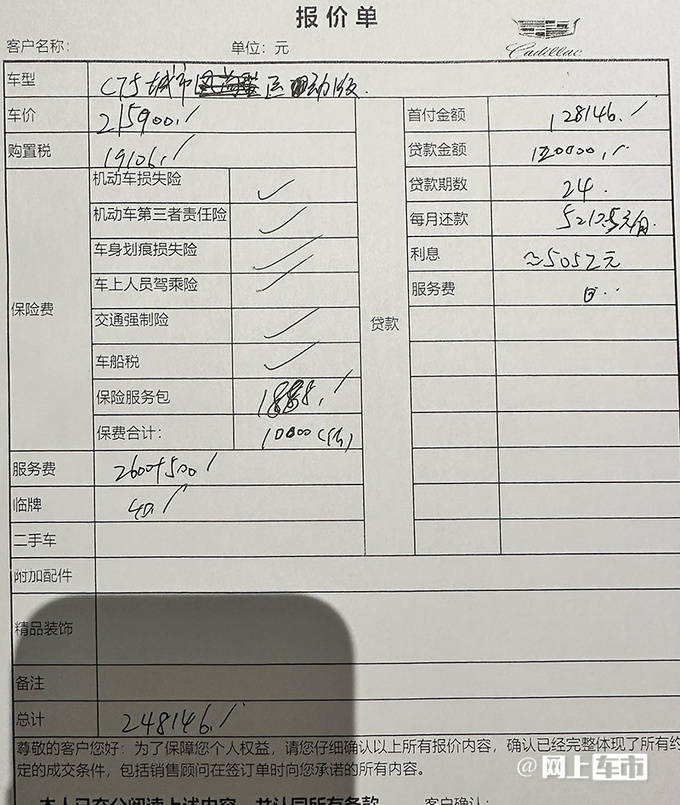 报价单
Cadillac
客户名称： 单位：元
车型 CT5 城市 运动版
车价 215900 首付金额 128146
购置税 19106 贷款金额 120000
机动车损失险 ✓ 贷款期数 24
机动车第三者责任险 ✓ 每月还款 元/月
车身划痕损失险 ✓ 利息 ≈5052元
车上人员驾乘险 ✓ 服务费
保险费 交通强制险 ✓ 贷款
车船税 ✓
保险服务包
保费合计： 10000
服务费 2600+500
临牌 40
二手车
附加配件
精品装饰
备注
总计 248146
尊敬的客户您好：为了保障您个人权益，请您仔细确认以上所有报价内容，确认已经完整体现了所有约
定的成交条件，包括销售顾问在签订单时向您承诺的所有内容。
本人已充分阅读上述内容，并认同所有条款 客户确认：
@网上车市